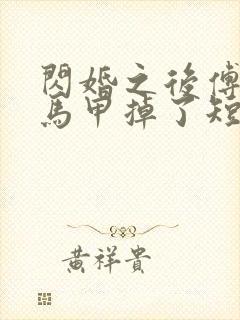 閃婚之後傅
馬甲掉了短
黃祥貴